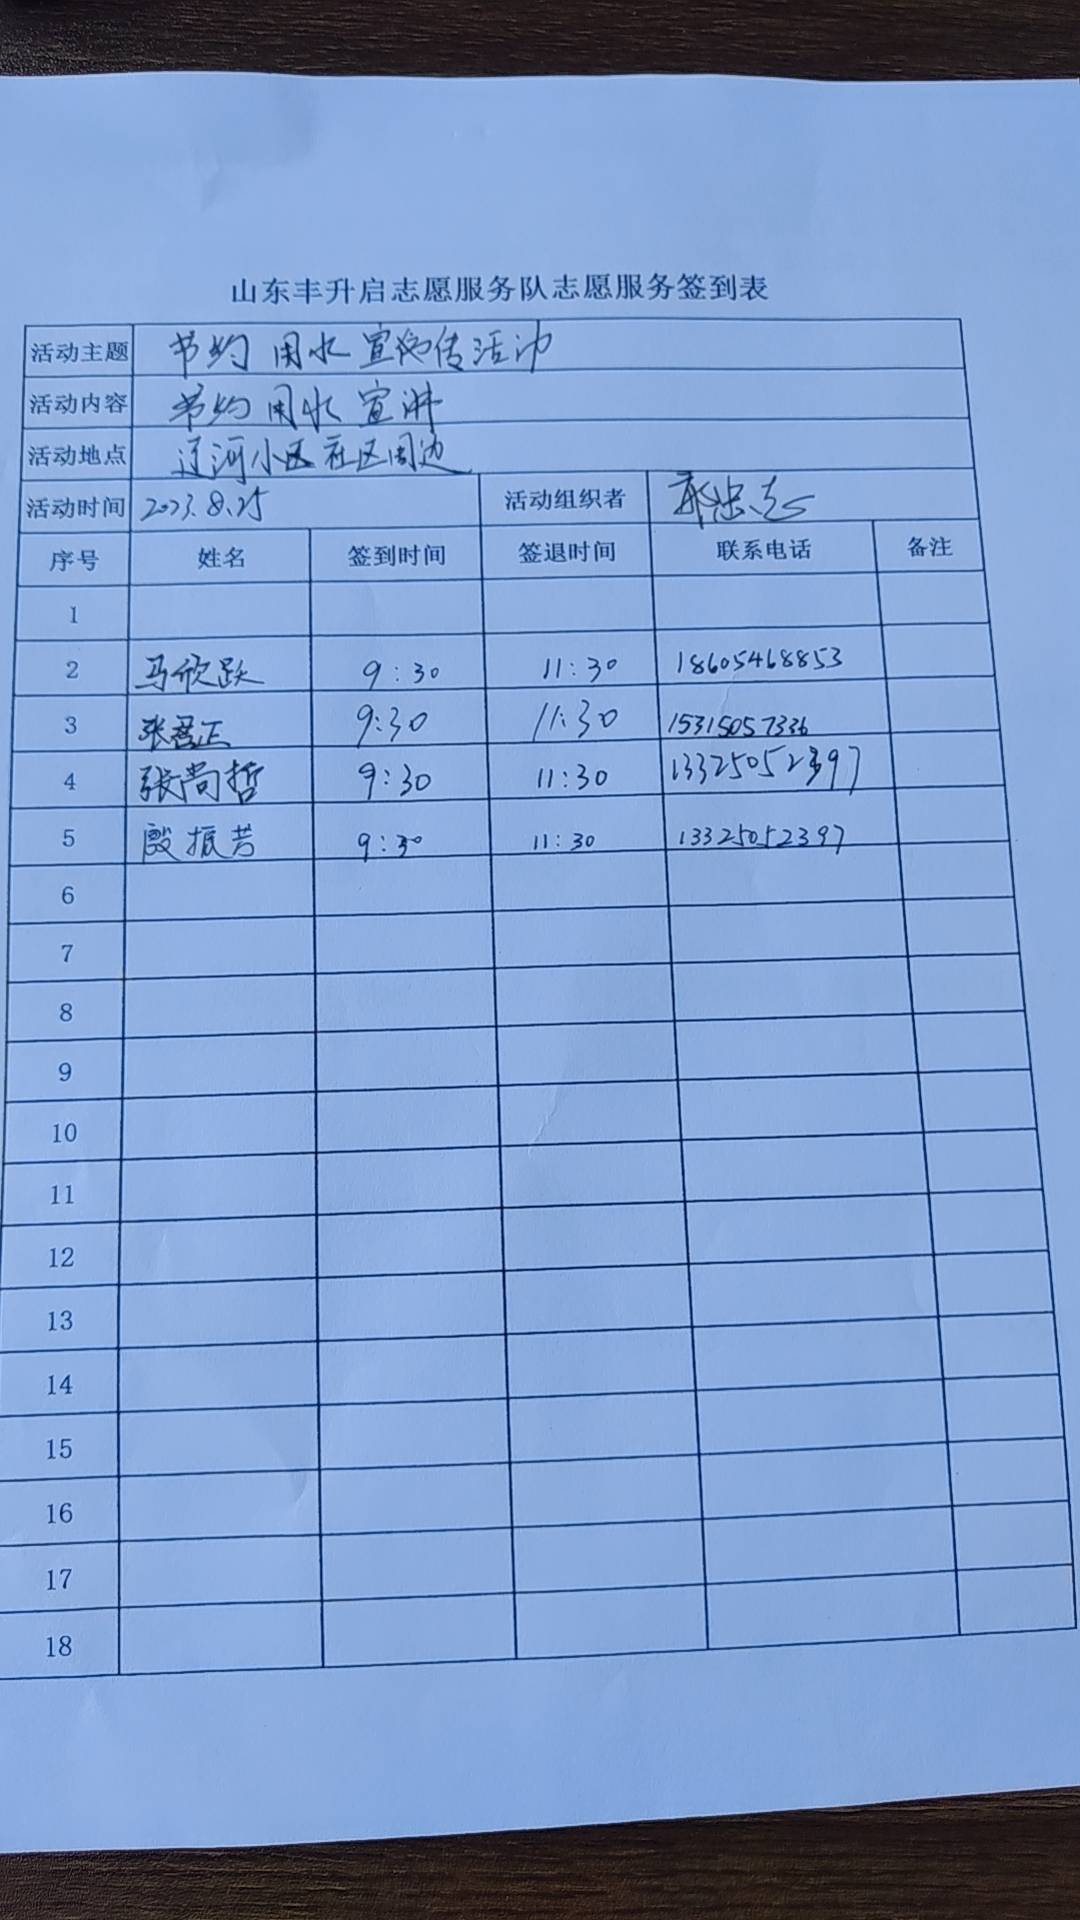 山东丰升启志愿服务队志愿服务签到表
活动主题 节约用水宣传活动
活动内容 节约用水宣讲
活动地点 辽河小区社区周边
活动时间 2023.8.25 活动组织者
序号 姓名 签到时间 签退时间 联系电话 备注
1
2 马欣跃 9:30 11:30 18605468853
3 张君正 9:30 11:30 15315057336
4 张尚哲 9:30 11:30 13325052397
5 殷振芳 9:30 11:30 13325052397
6
7
8
9
10
11
12
13
14
15
16
17
18